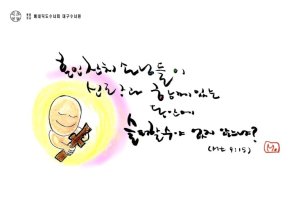 베네딕도수녀회 대구수녀원
혼인 잔치 손님들이
신랑과 함께 있는
동안에
슬퍼할 수야 없지 않으냐?
(Mt 9:15)